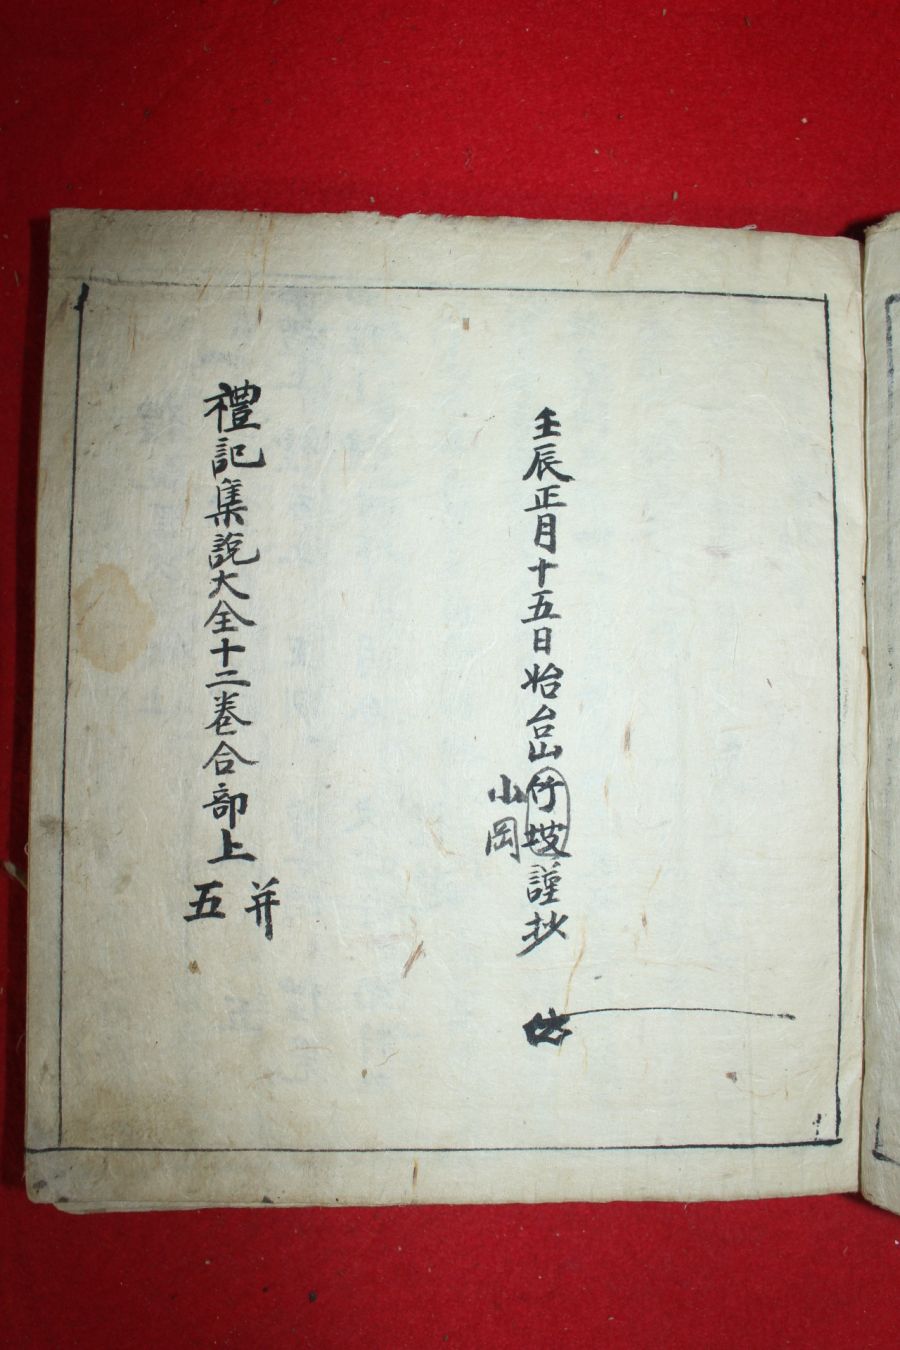 壬辰正月十五日始台山竹坡謹抄
小岡
禮記集說大全十二卷合部上
并
五